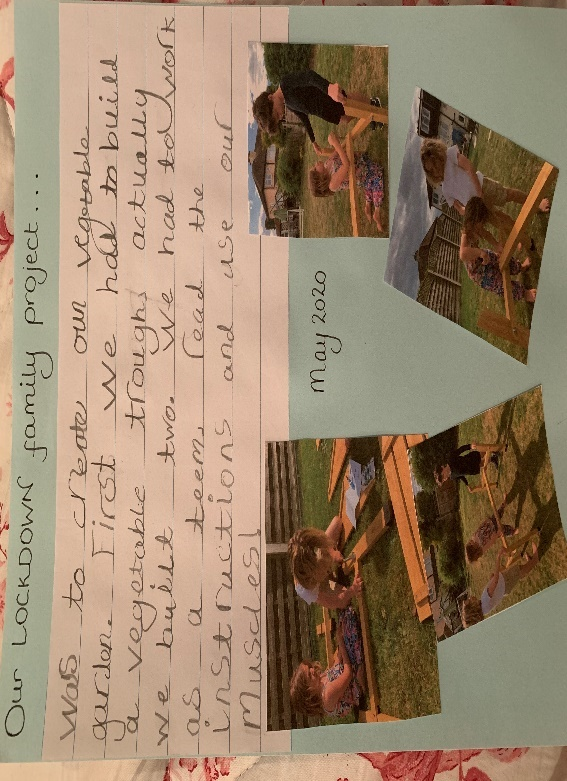 Our LOCKDOWN family project....
Was to create our vegetable
garden. First we had to build
a vegetable trough, actually
we built two. We had to work
as a teem, read the
instructions and use our
Muscles!
May 2020